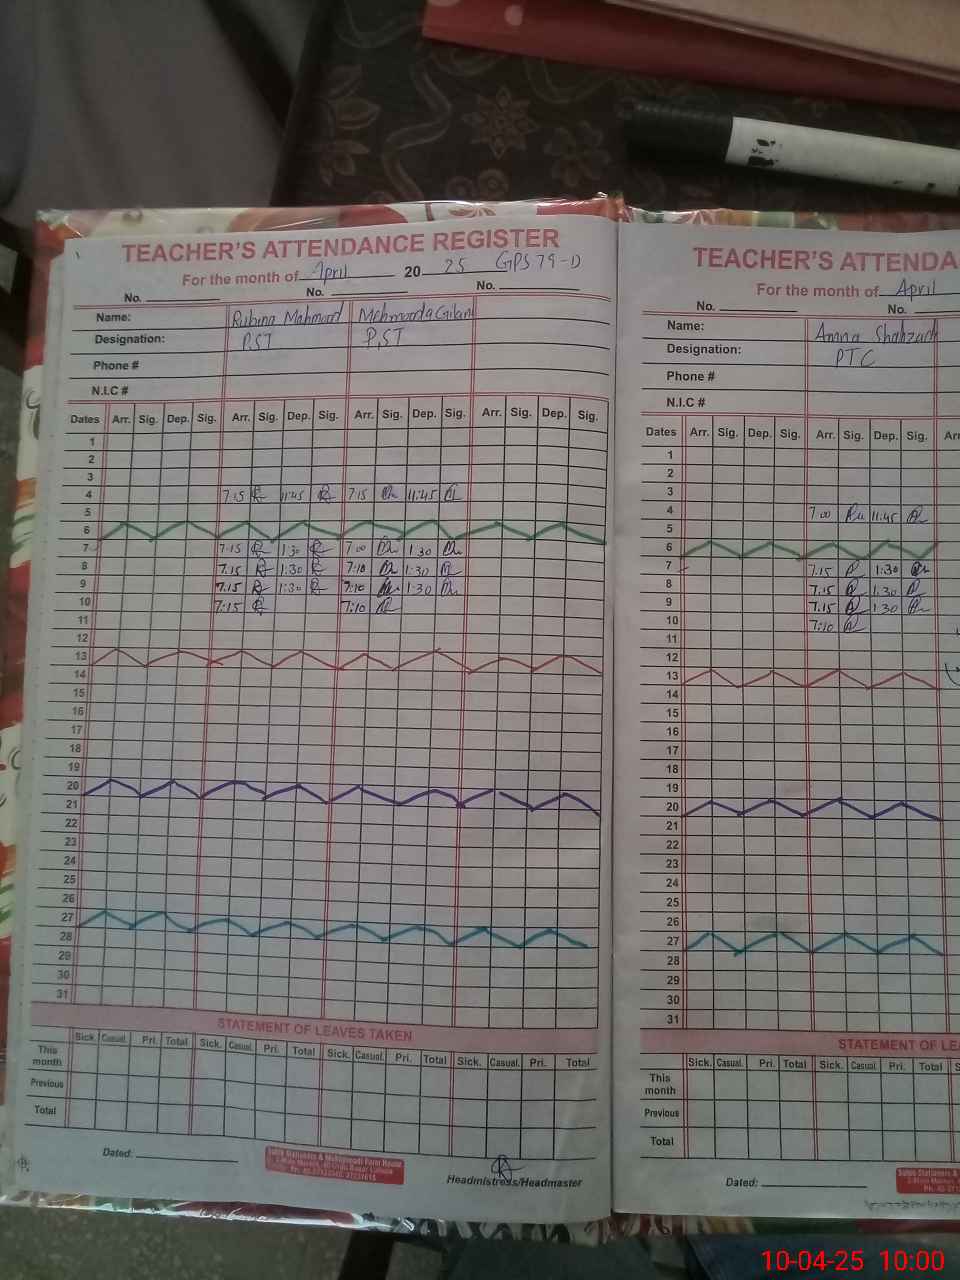 TEACHER'S ATTENDANCE REGISTER
For the month of April 2025 GPS 79-D
No. No. No.
Name: Rubina Mahmood Mehmooda Gilani
Designation: P.ST P,ST
Phone #
N.I.C #
Dates Arr. Sig. Dep. Sig. Arr. Sig. Dep. Sig. Arr. Sig. Dep. Sig. Arr. Sig. Dep. Sig.
1
2
3
4 7:15 11:45 7:15 11:45
5
6
7 7:15 1:30 7:00 1:30
8 7:15 1:30 7:10 1:30
9 7:15 1:30 7:10 1:30
10 7:15 7:10
11
12
13
14
15
16
17
18
19
20
21
22
23
24
25
26
27
28
29
30
31
STATEMENT OF LEAVES TAKEN
Sick. Casual. Pri. Total Sick. Casual. Pri. Total Sick. Casual. Pri. Total Sick. Casual. Pri. Total
This month
Previous
Total
Dated:
Headmistress/Headmaster
TEACHER'S ATTENDA
For the month of April
No. No.
Name: Amna Shahzadi
Designation: PTC
Phone #
N.I.C #
Dates Arr. Sig. Dep. Sig. Arr. Sig. Dep. Sig. Arr
1
2
3
4 7:00 11:45
5
6
7 7:15 1:30
8 7:15 1:30
9 7:15 1:30
10 7:10
11
12
13
14
15
16
17
18
19
20
21
22
23
24
25
26
27
28
29
30
31
STATEMENT OF LE
Sick. Casual. Pri. Total Sick. Casual. Pri. Total S
This month
Previous
Total
Dated:
10-04-25 10:00